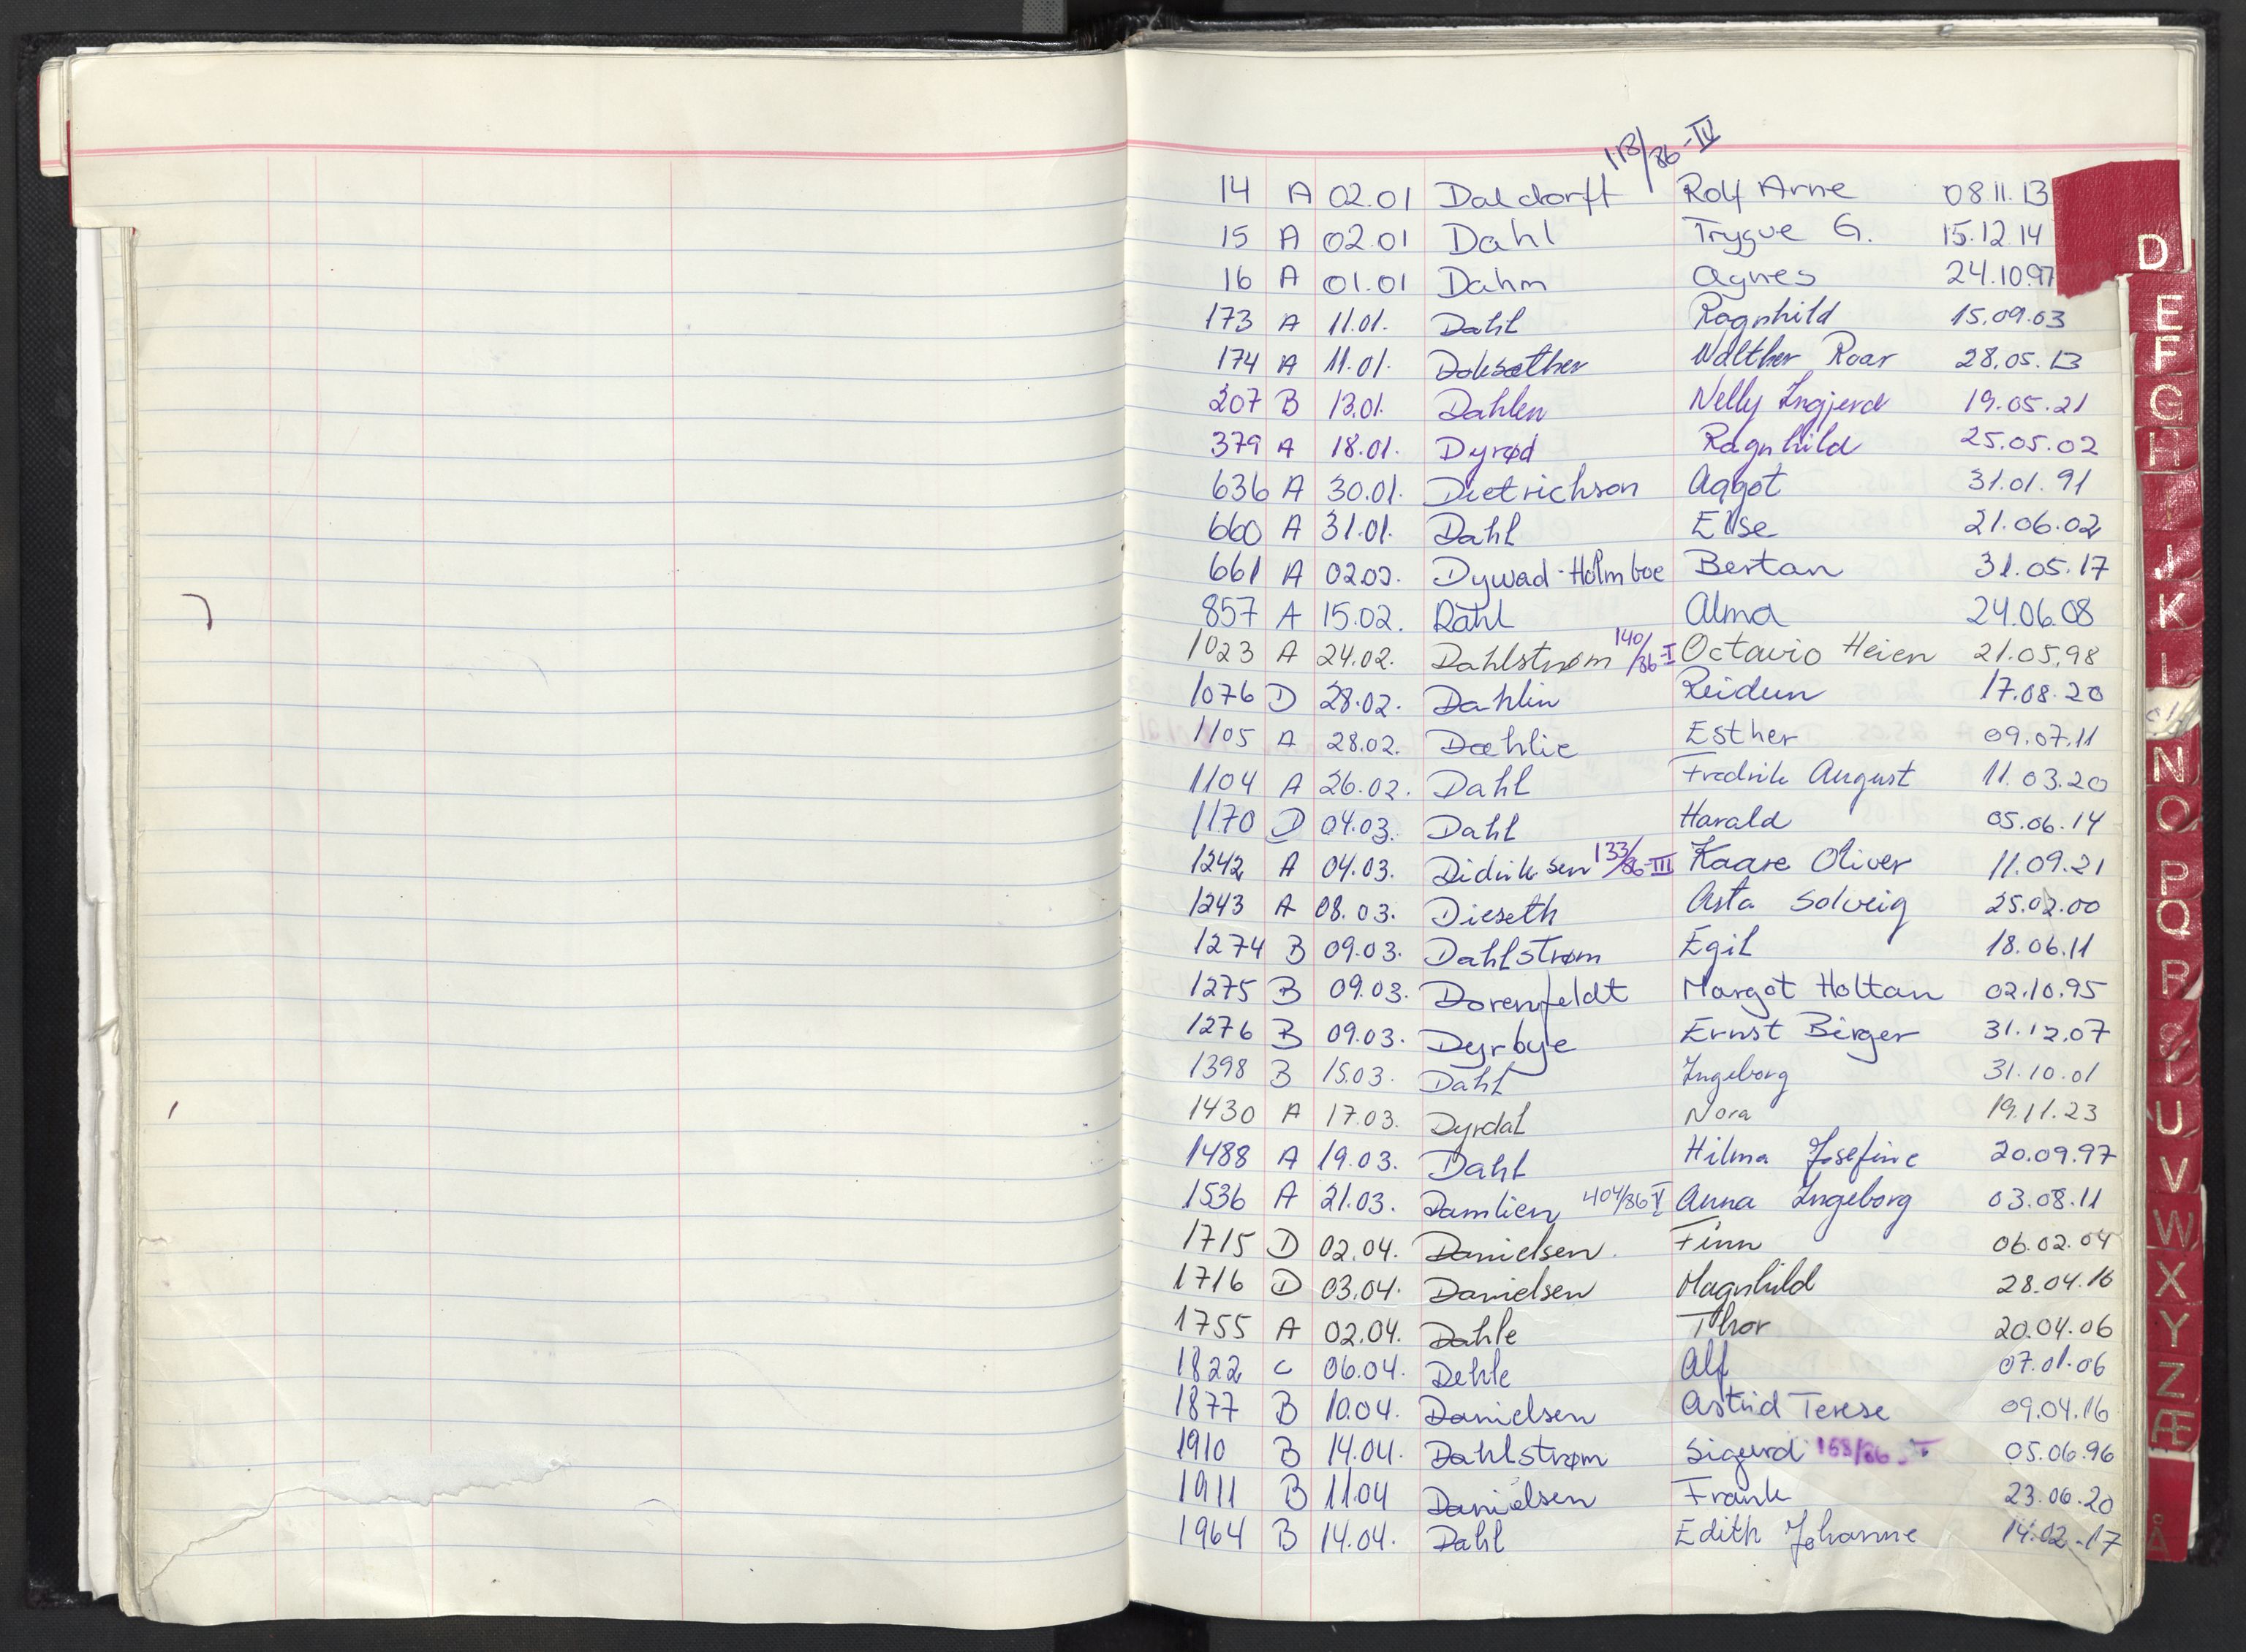 113/86-IV
14 A 02.01 Daldorft Rolf Arne 08.11.13
15 A 02.01 Dahl Trygve G. 15.12.14
16 A 01.01 Dahm Agnes 24.10.97
173 A 11.01. Dahl Ragnhild 15.09.03
174 A 11.01. Daksæther Walther Roar 28.05.13
207 B 13.01. Dahlen Nelly Ingjerd 19.05.21
379 A 18.01. Dyrød Ragnhild 25.05.02
636 A 30.01. Dietrichson Aagot 31.01.91
660 A 31.01. Dahl Else 21.06.02
661 A Dywad-Holmboe Bertan 31.05.17
857 A 15.02. Dahl Alma 24.06.08
1023 A 24.02. Dahlstrøm 140/86-I Octavio Heien 21.05.98
1076 D 28.02. Dahlin Reidun 17.08.20
1105 A 28.02. Dæhlie Esther 09.07.11
1104 A 26.02. Dahl Fredrik August 11.03.20
1170 D 04.03. Dahl Harald 05.06.14
1242 A 04.03. Didriksen 133/86-III Kaare Oliver 11.09.21
1243 A 08.03. Dieseth Asta Solveig 25.02.00
1274 B 09.03. Dahlstrøm Egil 18.06.11
1275 B 09.03. Dorenfeldt Margot Holtan 02.10.95
1276 B 09.03. Dyrbye Ernst Birger 31.12.07
1398 B 15.03. Dahl Ingeborg 31.10.01
1430 A 17.03. Dyrdal Nora 19.11.23
1488 A 19.03. Dahl Hilma Josefine 20.09.97
1536 A 21.03. Damlien 404/86 V Anna Ingeborg 03.08.11
1715 D 02.04. Danielsen Finn 06.02.04
1716 D 03.04. Danielsen Magnhild 28.04.16
1755 A 02.04. Dahle Thor 20.04.06
1822 C 06.04. Dehle Alf 07.01.06
1877 B 10.04. Danielsen Astrid Terese 09.04.16
1910 B 14.04. Dahlstrøm Sigurd 168/86 05.06.96
1911 B 11.04 Danielsen Frank 23.06.20
1964 B 14.04. Dahl Edith Johanne 14.02.17
D
E
F
G
H
J
K
L
N
O
P
Q
R
S
T
U
V
W
X
Y
Z
Æ
Å